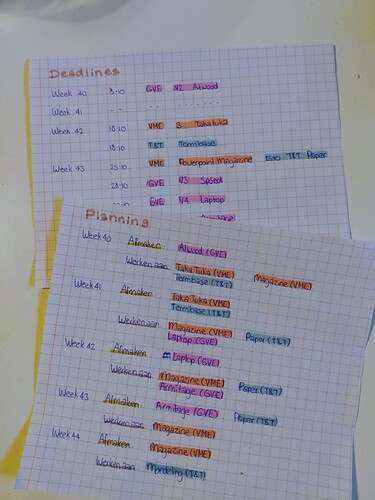 Deadlines
Week 40 8:10 GVE V2 Atwood
Week 41 -- -------
Week 42 18:10 VME 3 TakaTuka
18:10 T&T Termbase
Week 43 25:10 VME Powerpoint Magazine T&T Paper
28:10 GVE V3 Speed
GVE V4 Laptop
Planning
Week 40 Afmaken: Atwood (GVE)
Werken aan: TakaTuka (VME) Magazine (VME)
Termbase (T&T)
Week 41 Afmaken TakaTuka (VME)
Termbase (T&T)
Werken aan: Magazine (VME) Paper (T&T)
Laptop (GVE)
Week 42 Afmaken Laptop (GVE)
Werken aan Magazine (VME) Paper (T&T)
Armitage (GVE)
Week 43 Afmaken Armitage (GVE) Paper (T&T)
Werken aan Magazine (VME)
Week 44 Afmaken Magazine (VME)
Werken aan (T&T)